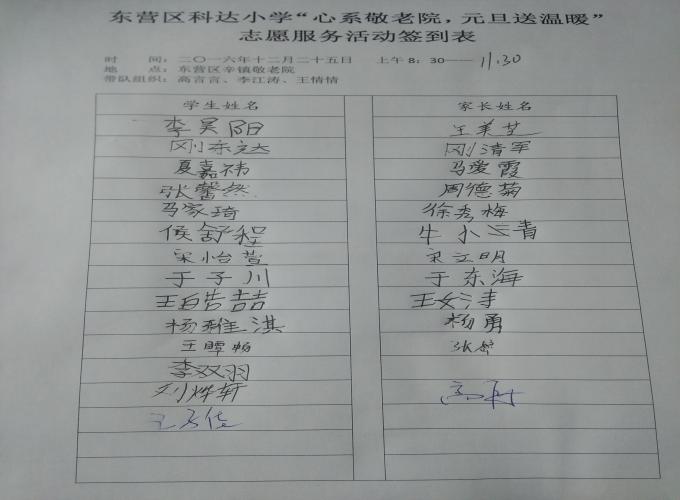 东营区科达小学“心系敬老院，元旦送温暖”
志愿服务活动签到表
时 间：二〇一六年十二月二十五日 上午8：30——11:30
地 点：东营区辛镇敬老院
带队组织：高言言、李江涛、王情情
学生姓名 家长姓名
李昊阳 王美芝
刚东达 刚清军
夏嘉祎 马爱霞
张馨然 周德菊
马家琦 徐秀梅
候舒程 牛小云青
宋怡萱 宋立明
于子川 于东海
王皓喆 王女士
杨雅淇 杨勇
王暺畅 张
李双羽
刘烨轩 高